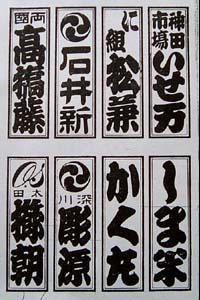 神田市場
いせ万
に組
松兼
石井新
両國
髙橋藤
しま米
深川
彫源
太田
櫛朝